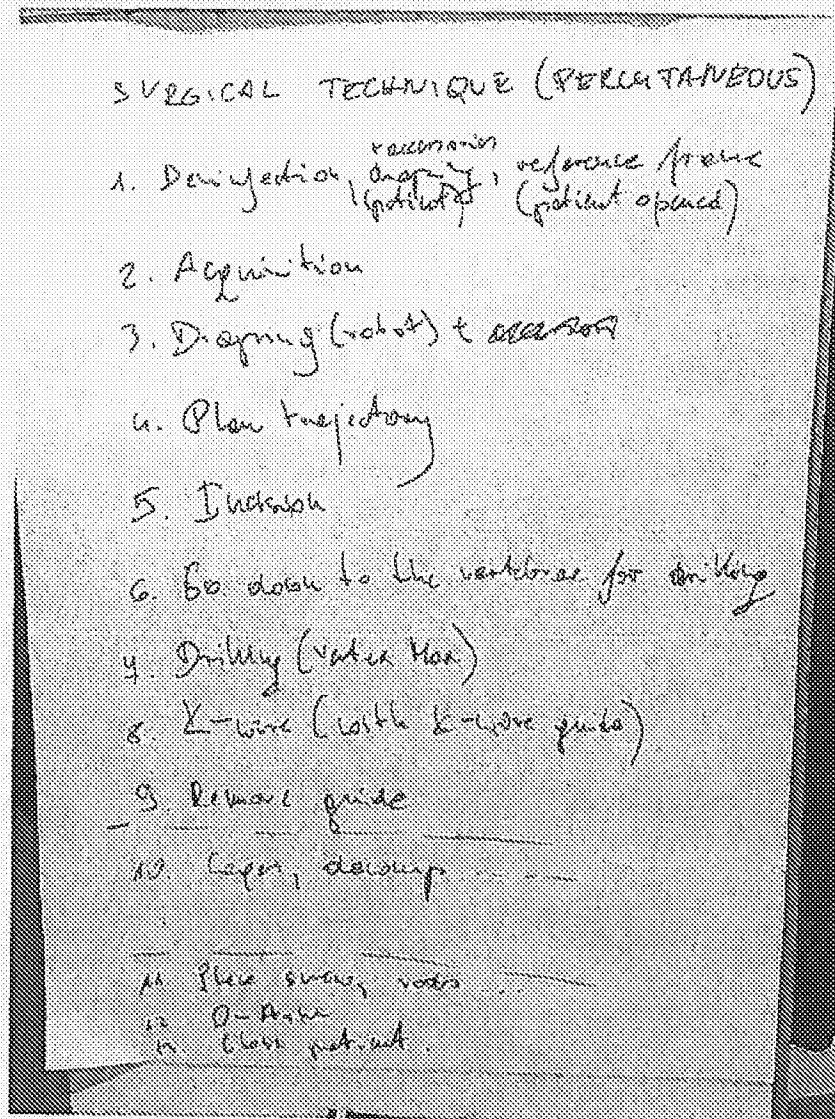 SURGICAL TECHNIQUE (PERCUTANEOUS)
+ accessories
1. Desinfection, draping, reference frame
(patient) (patient opened)
2. Acquisition
3. Draping (robot) +
4. Plan trajectory
5. Incision
6. Go down to the vertebrae for drilling
7. Drilling (
8. K-wire (with k-wire guide)
9. Remove guide
10. Cages, decomp
11 Place screws, rods
12 O-Arm
13 Close patient.